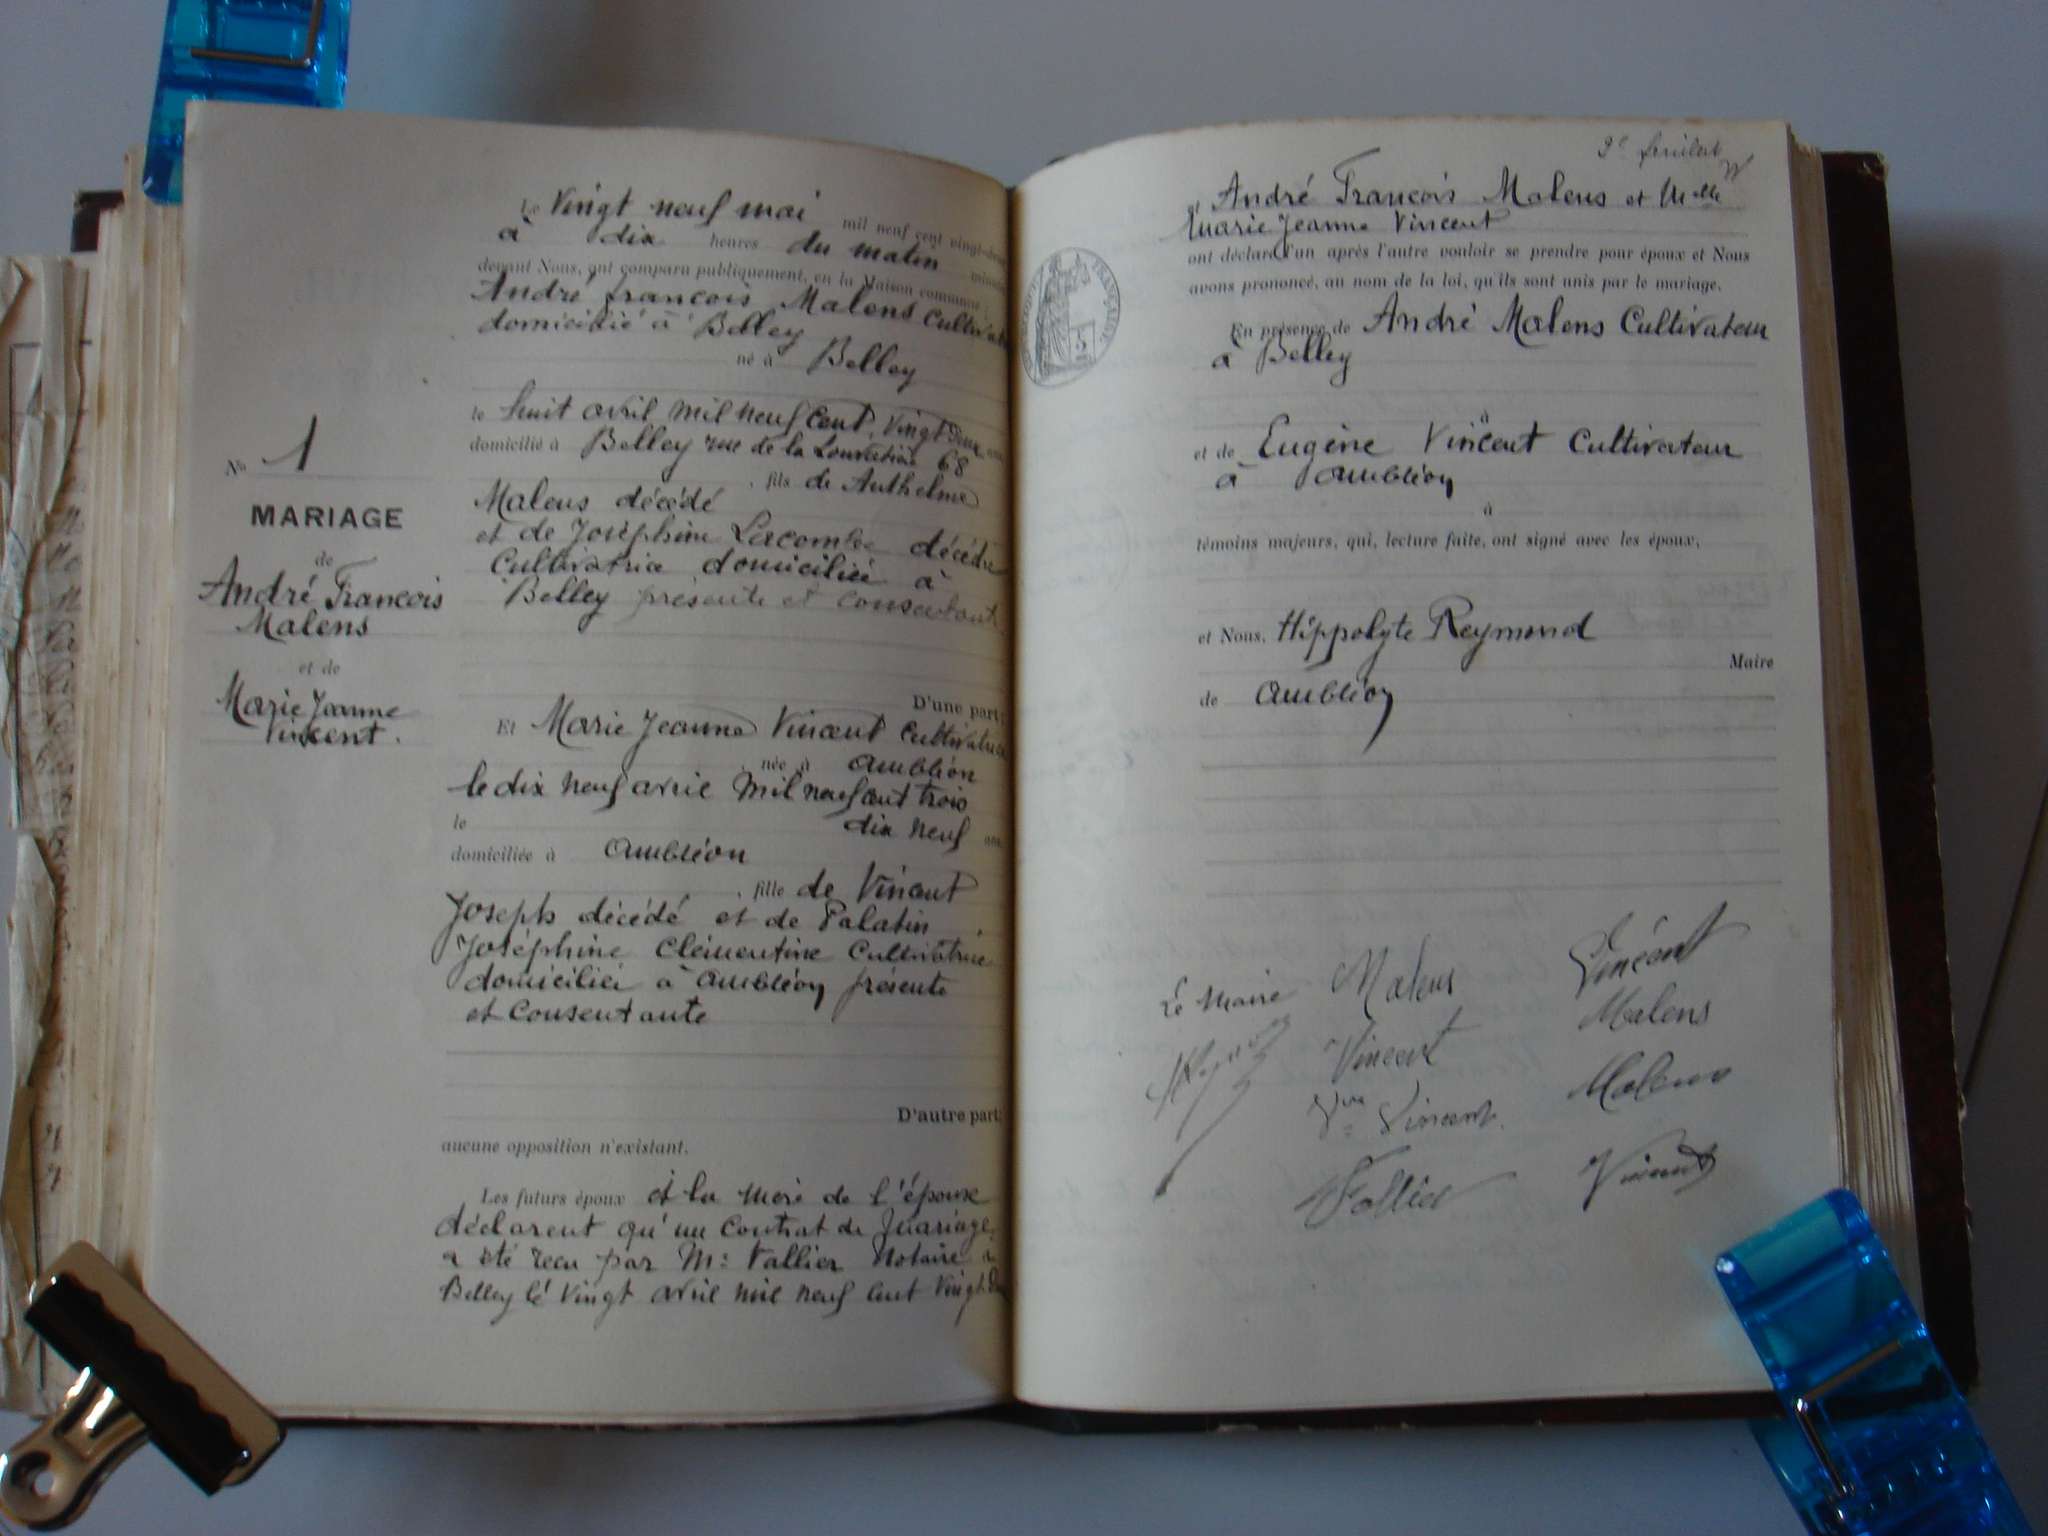 Le Vingt neuf mai mil neuf cent vingt-deux
à dix heures du matin minutes
devant Nous, ont comparu publiquement, en la Maison commune :
André françois Malens Cultivateur
domicilié à Belley
né à Belley
le huit avril mil neuf Cent, Vingt Deux ans
domicilié à Belley rue de la 68
, fils de Anthelme
Malens décédé
et de Joséphine Lacombe décédée
Cultivatrice domiciliée à
Belley présente et consentante
D'une part;
Et Marie Jeanne Vincent Cultivatrice
née à Ambléon
le dix neuf avril mil neuf cent trois
le dix neuf ans
domiciliée à Ambléon
, fille de Vincent
Joseph décédé et de Palatin
Joséphine Clémentine Cultivatrice
domiciliée à Ambléon présente
et Consentante
D'autre part;
aucune opposition n'existant.
Les futurs époux et la mère de l'épouse
déclarent qu'un Contrat de Mariage
a été recu par M: Vallier Notaire à
Belley lé Vingt avril mil neuf cent Vingt-Deux
No 1
MARIAGE
de
André François
Malens
et de
Marie Jeanne
Vincent.
2e feuillet
et André François Malens et Melle
Marie Jeanne Vincent
ont déclaré l'un après l'autre vouloir se prendre pour époux et Nous
avons prononcé, au nom de la loi, qu'ils sont unis par le mariage.
FRANÇAISE
En présence de André Malens Cultivateur
à Belley
à
et de Eugène Vincent Cultivateur
à Ambléon
à
témoins majeurs, qui, lecture faite, ont signé avec les époux,
et Nous, Hippolyte Reymond
Maire
de Ambléon
Lé Maire
HReymond
Malens
Vincent
Vve Vincent
Vallier
Vincent
Malens
Malens
Vincent